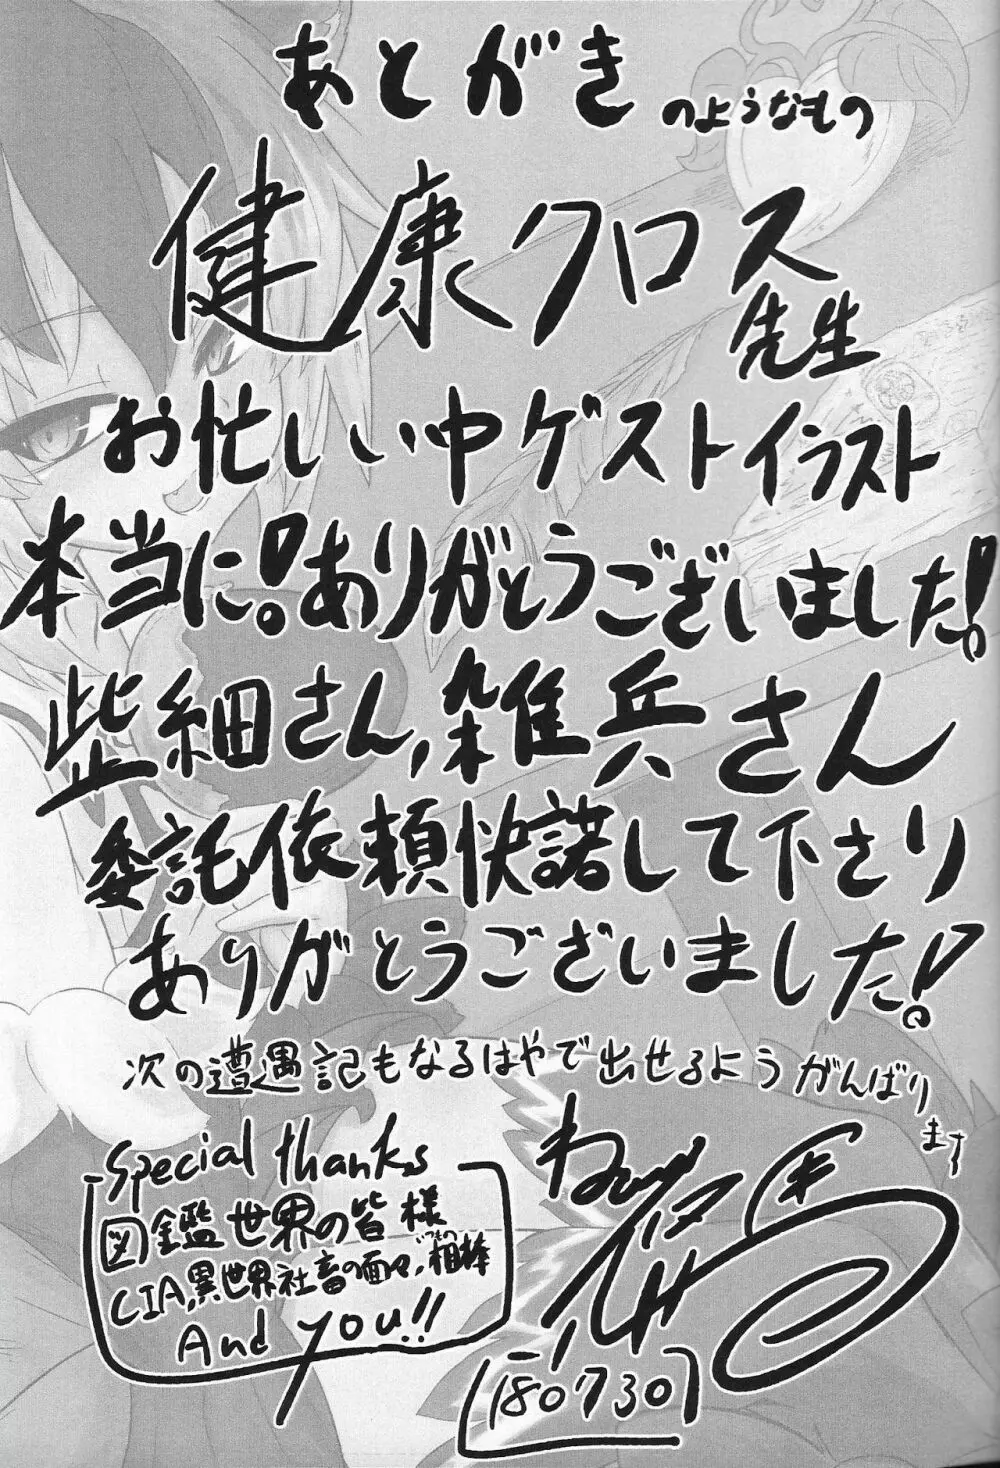 あとがきのようなもの
健康クロス
先生
お忙しい中ゲストイラスト
本当に!ありがとうございました!
些細さん,雑兵さん
委託依頼快諾して下さり
ありがとうございました!
次の遭遇記もなるはやで出せるようがんばり
ます
Special thanks
図鑑世界の皆様
CIA,異世界社畜の面々,いつもの相棒
And you!!
180730